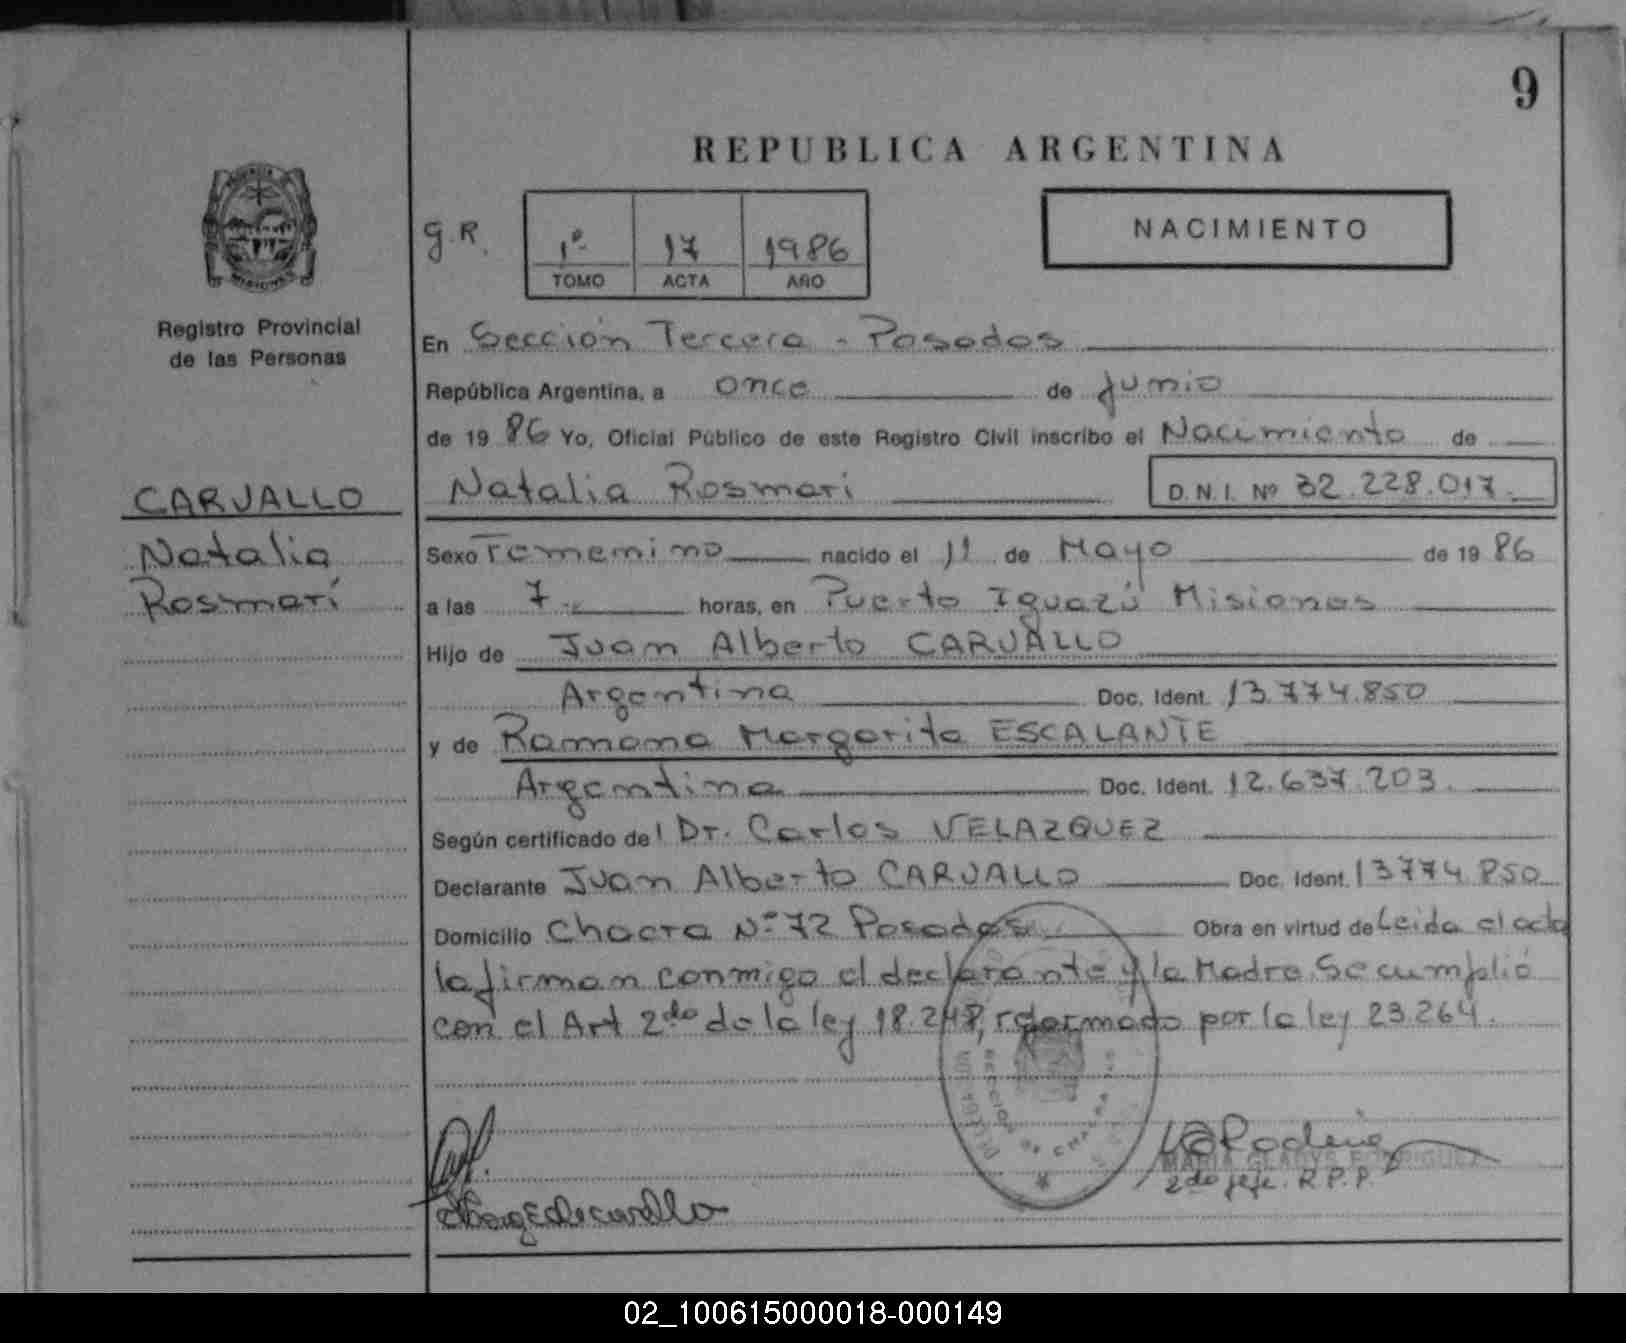 9
REPUBLICA ARGENTINA
NACIMIENTO
g.R.
1º 17 1986
TOMO ACTA AÑO
MISIONES
Registro Provincial
de las Personas
En Sección Tercera - Posadas
República Argentina, a once de Junio
de 19 86 Yo, Oficial Público de este Registro Civil inscribo el Nacimiento de
Natalia Rosmari D.N.I. Nº 32.228.017.
CARVALLO
Natalia
Rosmarí
Sexo Femenino nacido el 11 de Mayo de 19 86
a las 7 horas, en Puerto Iguazú Misiones
Hijo de Juan Alberto CARVALLO
Argentina Doc. Ident. 13.774.850
y de Ramona Margarita ESCALANTE
Argentina Doc. Ident. 12.637.203.
Según certificado del Dr. Carlos VELAZQUEZ
Declarante Juan Alberto CARVALLO Doc. Ident. 13774.850
Domicilio Chacra Nº 72 Posadas Obra en virtud de Leida el acta
la firman conmigo el declarante y la Madre. Se cumplió
con el Art 2do de la ley 18.248, reformado por la ley 23.264.
MARIA GLADYS RODRIGUEZ
2do Jefe. R.P.P.
02_100615000018-000149